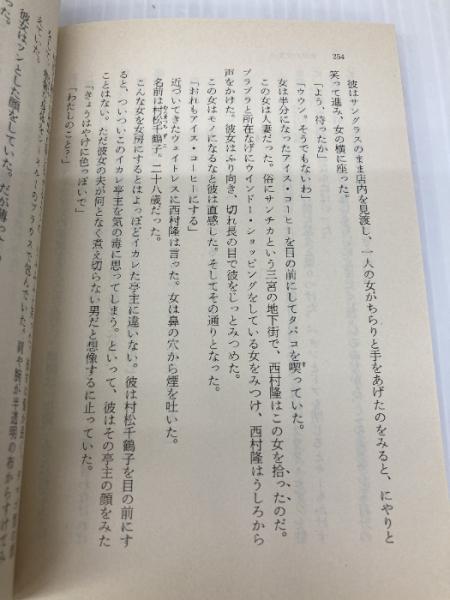 254
彼はサングラスのまま店内を見渡し、一人の女がちらりと手をあげたのをみると、にやりと
笑って進み、女の横に座った。
「よう、待ったか」
「ウウン。そうでもないわ」
女は半分になったアイス・コーヒーを目の前にしてタバコを喫っていた。
この女は人妻だった。俗にサンチカという三宮の地下街で、西村隆はこの女を拾ったのだ。
ブラブラと所在なげにウインドー・ショッピングをしている女をみつけ、西村隆はうしろから
声をかけた。彼女はふり向き、切れ長の目で彼をじっとみつめた。
この女はモノになるなと彼は直感した。そしてその通りとなった。
「おれもアイス・コーヒーにする」
近づいてきたウェイトレスに西村隆は言った。女は鼻の穴から煙を吐いた。
名前は村松千鶴子。二十八歳だった。
こんな女を女房にするとはよっぽどイカレた亭主に違いない。彼は村松千鶴子を目の前にす
ると、ついついこのイカレ亭主を気の毒に思ってしまう。といって、彼はその亭主の顔をみた
ことはない。ただ彼女の夫が何となく煮え切らない男だと想像するに止っていた。
「きょうはやけに色っぽいで」
「わたしのことう？」
彼女はツンとした顔をしていた。だが薄